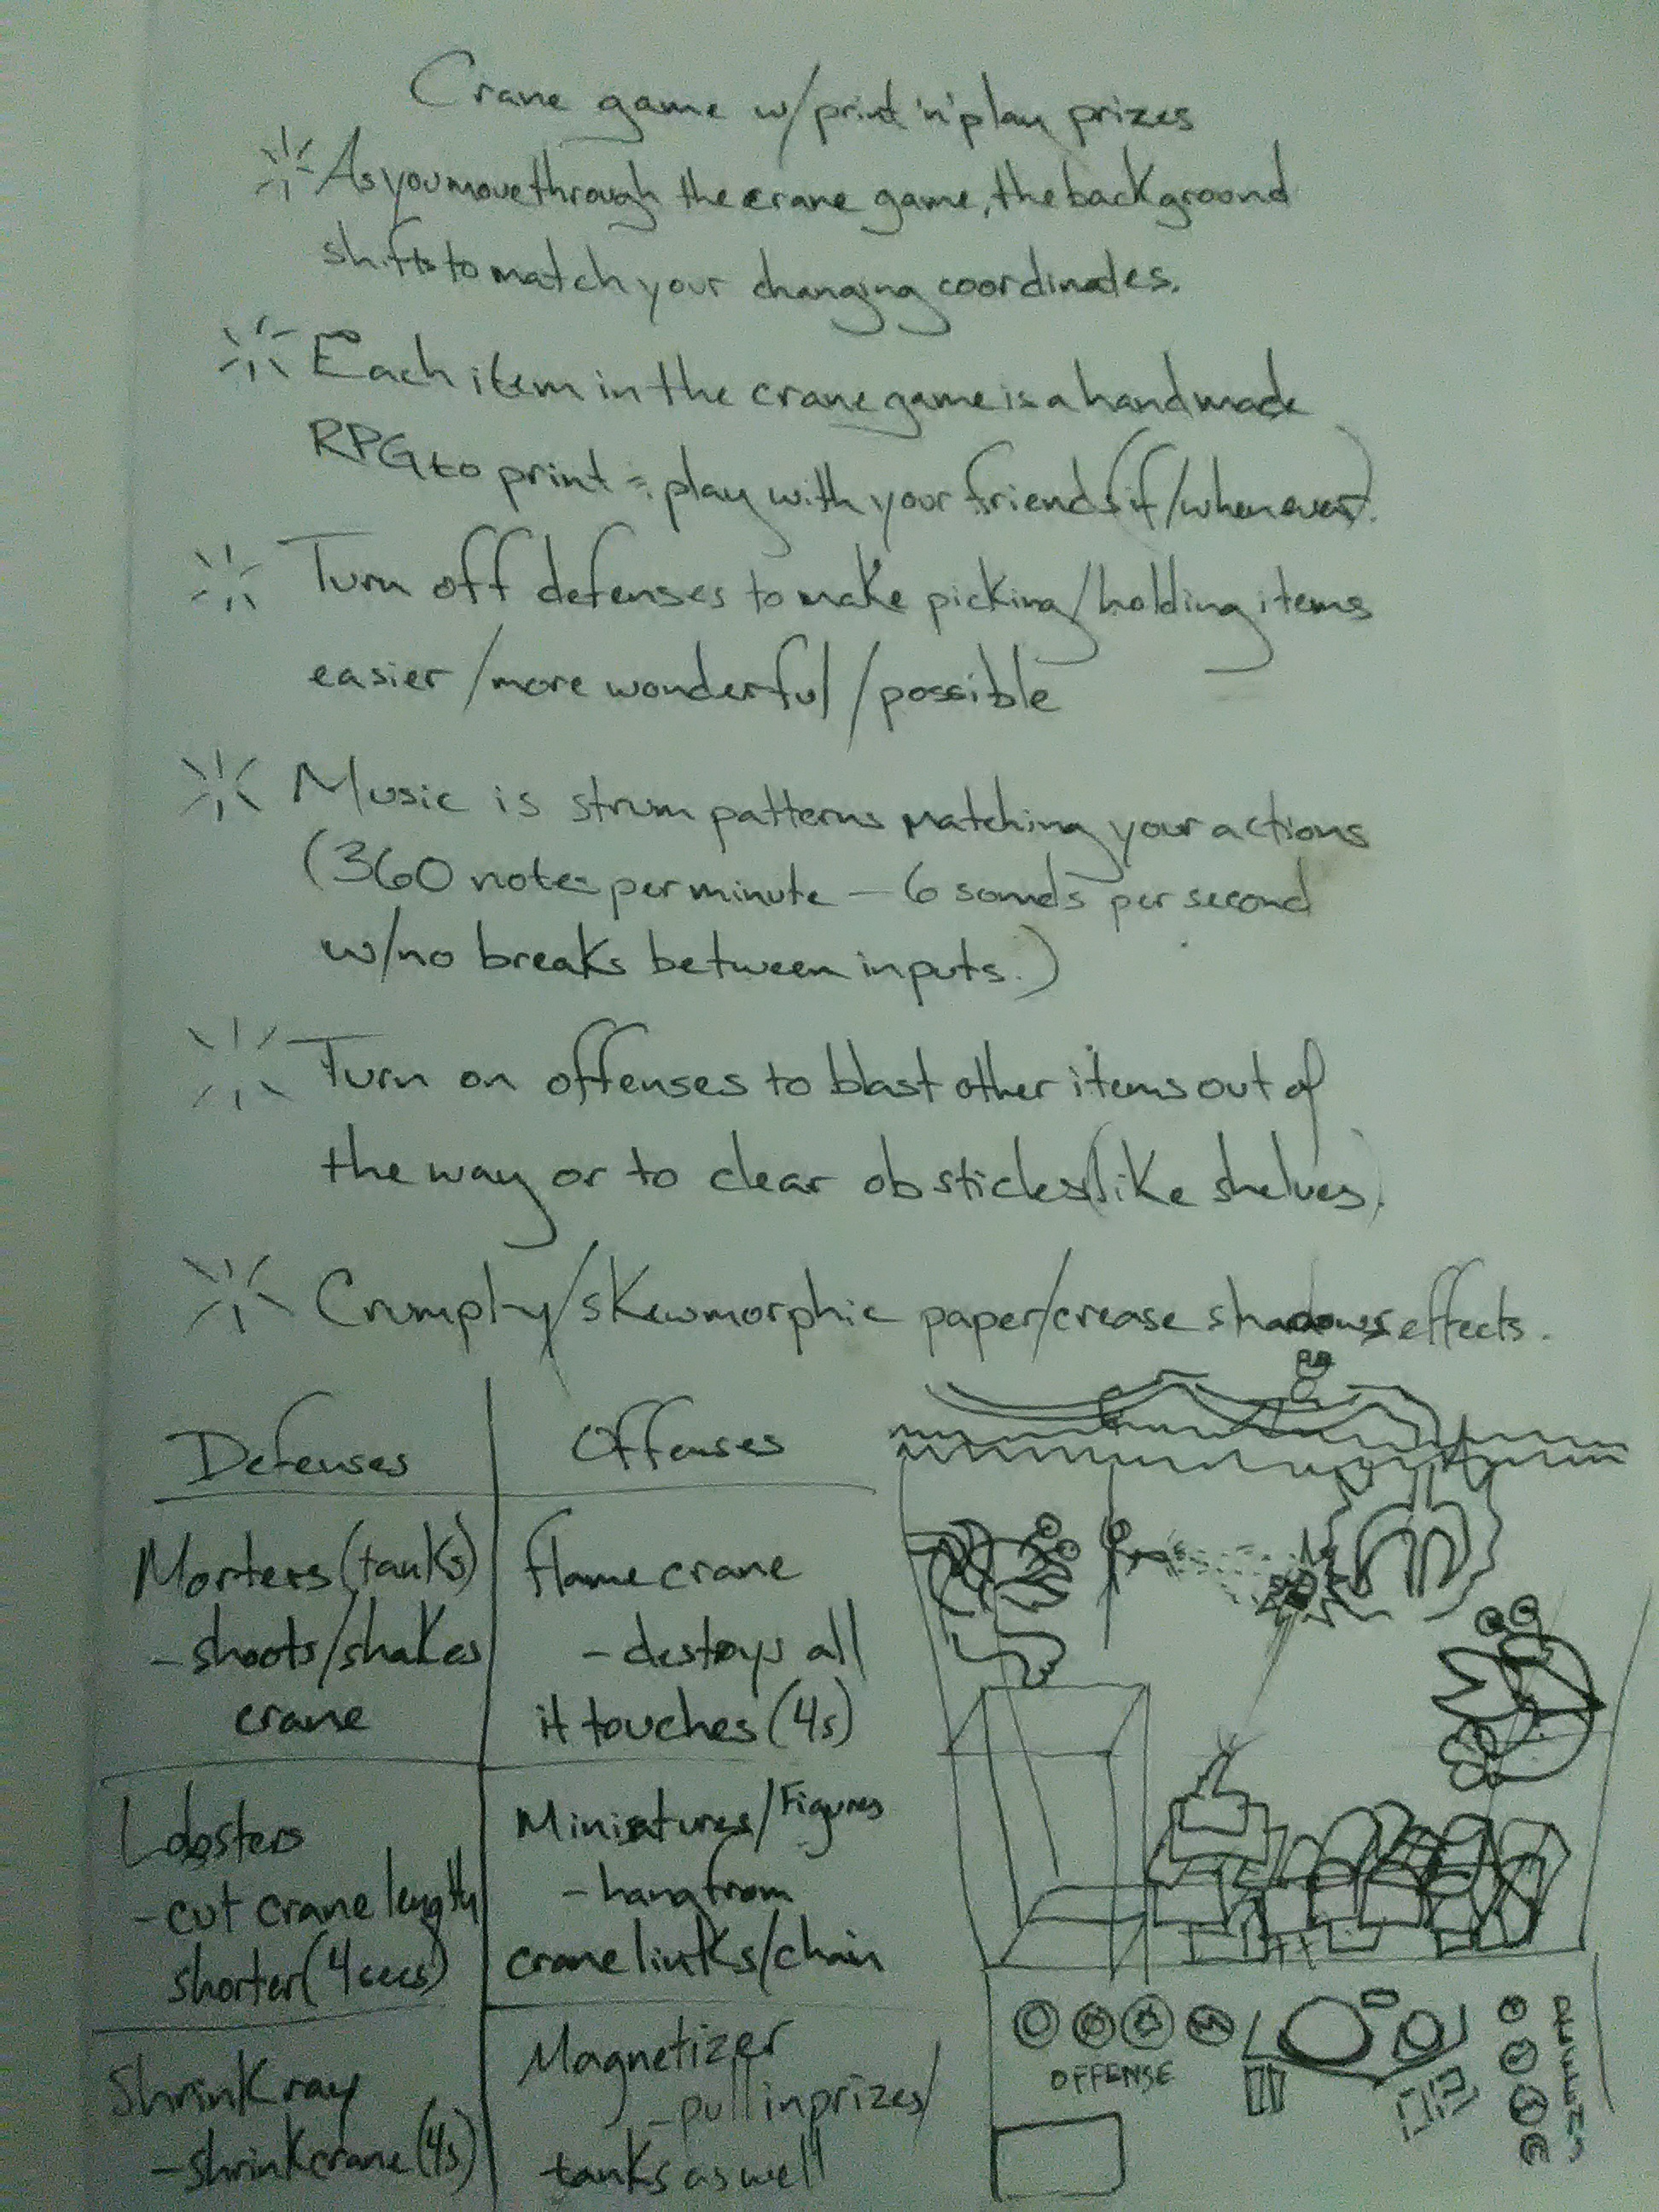 Crane game w/print 'n' play prizes
As you move through the crane game, the background
shifts to match your changing coordinates.
Each item in the crane game is a handmade
RPG to print & play with your friends (if/whenever).
Turn off defenses to make picking/holding items
easier/more wonderful/possible
Music is strum patterns matching your actions
(360 notes per minute – 6 sounds per second
w/no breaks between inputs.)
Turn on offenses to blast other items out of
the way or to clear obsticles (like shelves).
Crumply/skewmorphic paper/crease shadows effects.
Defenses
Offenses
Morters (tanks)
- shoots/shakes
crane
flame crane
- destroys all
it touches (4s)
Lobsters
- cut crane length
shorter (4 secs)
Miniatures/Figures
- hang from
crane links/chain
Shrink ray
- shrink crane (4s)
Magnetizer
- pull in prizes/
tanks as well
OFFENSE
DEFENS